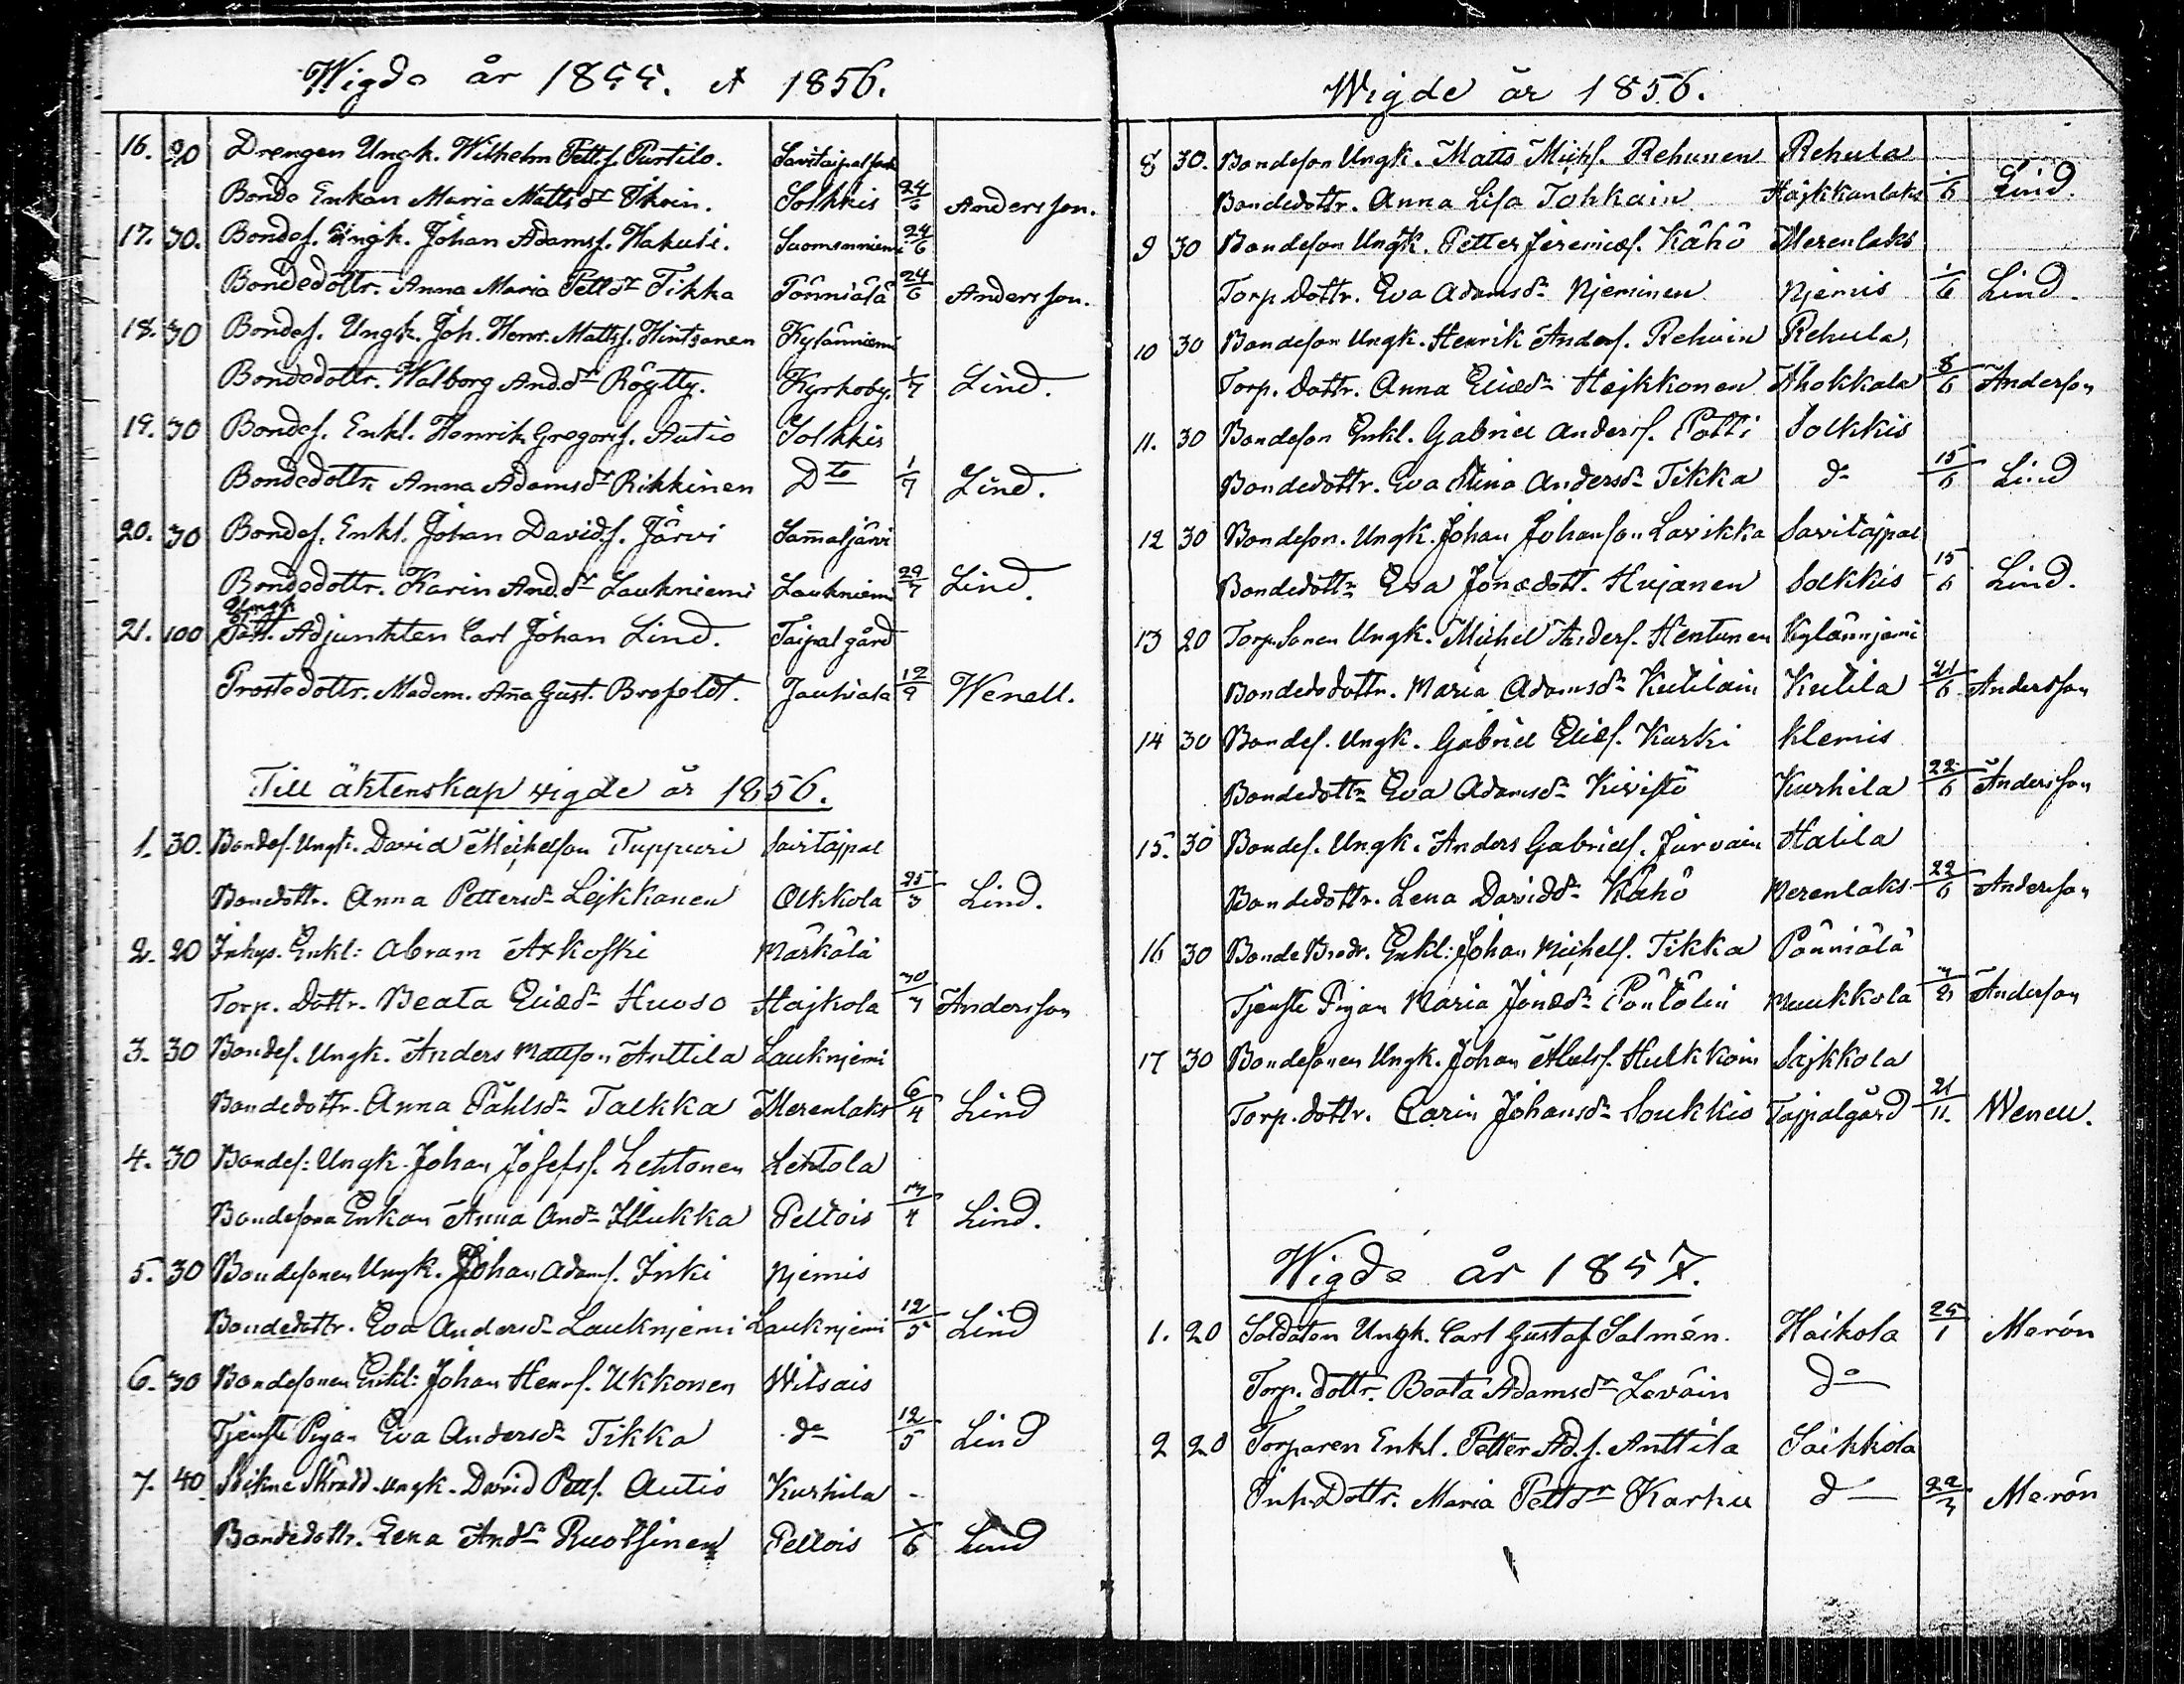 Wigde år 1855. et 1856.
16. 20 Drengen Ungk. Wilhelm Pett.s. Purtilo. Savitaipal
Bonde Enkan Maria Mattsdr Ikoin. Solkkis 24/6 Andersson.
17. 30. Bondes. Ungk. Johan Adamss. Hakuli. Suomenniemi 24/6
Bondedottr. Anna Maria Pettdr Tikka Pönniälä 24/6 Andersson.
18. 30 Bondes. Ungk. Joh. Henr. Mattss. Hintsanen Kylänniemi
Bondedottr. Walborg And.dr Röytty. Kyrkoby. 1/7 Lind.
19. 30 Bondes. Enkl. Henrik Gregorss. Autio Solkkis
Bondedottr. Anna Adamsdr Rikkinen Dto 1/7 Lind.
20. 30 Bondes. Enkl. Johan Davids. Järvi Samaljärvi
Bondedottr. Karin And.dr Laukniemi Laukniemi 29/7 Lind.
Ungk
21. 100 Past. Adjunkten Carl Johan Lind. Taipal gård
Prostedottr. Madem. Aña Gust. Brofeldt. Jauhiala 12/9 Wenell.
Till äktenskap vigde år 1856.
1. 30. Bondes. Ungk. David Michelson Tuppuri Savitajpal
Bonedottr. Anna Pettersdr Lejkkanen Olkkola 25/3 Lind.
2. 20 Inhys. Enkl: Abram Axkoski Märkälä
Torp. Dottr. Beata Eliædr Huoso Hajkola 30/3 Andersson
3. 30 Bondes. Ungk. Anders Mattson Anttila Lauknjemi
Bondedottr. Anna Påhlsdr Talkka Merenlaks 6/4 Lind
4. 30 Bondes: Ungk. Johan Josefss. Lehtonen Lehtola
Bondesona Enkan Anna Anddr Illukka Peltois /4 Lind.
5. 30 Bondesonen Ungk. Johan Adams. Inki Njemis
Bondedottr. Eva Andersdr Lauknjemi Lauknjemi 12/5 Lind
6. 30 Bondesonen Enkl: Johan Henrs. Ukkonen Witsais
Tjenste Pigan Eva Andersdr Tikka do 12/5 Lind
7. 40. Sokne Skrädd. Ungk. David Petts. Autio Kurhila
Bondedottr. Lena Anddr Ruotsinen Peltois 1/6 Lind
Wigde år 1856.
8 30. Bondeson Ungk. Matts Michs. Rehunen Rehula
Bondedottr. Anna Lisa Tohkain Hajkkanlaks 1/6 Lind.
9 30 Bondeson Ungk. Petter Jeremiæs. Kähö Merenlaks
Torp. Dottr. Eva Adamsdr Njeminen Njemis 1/6 Lind.
10 30 Bondeson Ungk. Henrik Anders. Rehuin Rehula
Torp. Dottr. Anna Eliædr Hejkkonen Ahokkala 8/6 Anderson
11. 30 Bondeson Enkl. Gabriel Anderss. Potti Solkkis
Bondedottr. Eva Stina Andersdr Tikka do 15/6 Lind
12 30 Bondeson. Ungk. Johan Johanson Lavikka Savitajpal
Bondedottr Eva Jonædott. Hujanen Solkkis 15/6 Lind.
13 20 Torp.Sonen Ungk. Michel Anders. Hentunen Kylännjemi
Bondedodottr. Maria Adamsdr Kutilain Kutila 21/6 Andersson
14 30 Bondes. Ungk. Gabriel Eliæs. Kurki Klemis
Bondedottr Eva Adamsdr Kivistö Kurhila 22/6 Andersson
15. 30 Bondes. Ungk. Anders Gabriels. Jurvain Halila
Bondedottr. Lena Daviddr Kähö Merenlaks 22/6 Anderson
16 30 Bonde Brodr. Enkl: Johan Michels. Tikka Pönniälä
Tjenste Pigan Maria Jonædr Pöntölin Muukkola Anderson
17 30 Bondesonen Ungk. Johan Abels. Hulkkoin Sajkkola
Torp. dottr. Carin Johansdr Soukkio Tajpalgård 21/11. Wenell.
Wigde år 1857.
1. 20 Soldaten Ungk. Carl Gustaf Salmén. Haikola 25/1 Merón
Torp. dottr. Beata Adamsdr Leväin do
2 20 Torparen Enkl. Petter Ad.s. Anttila Saikkola
Inh.Dottr. Maria Pettdr Karhu d 22/3 Merón